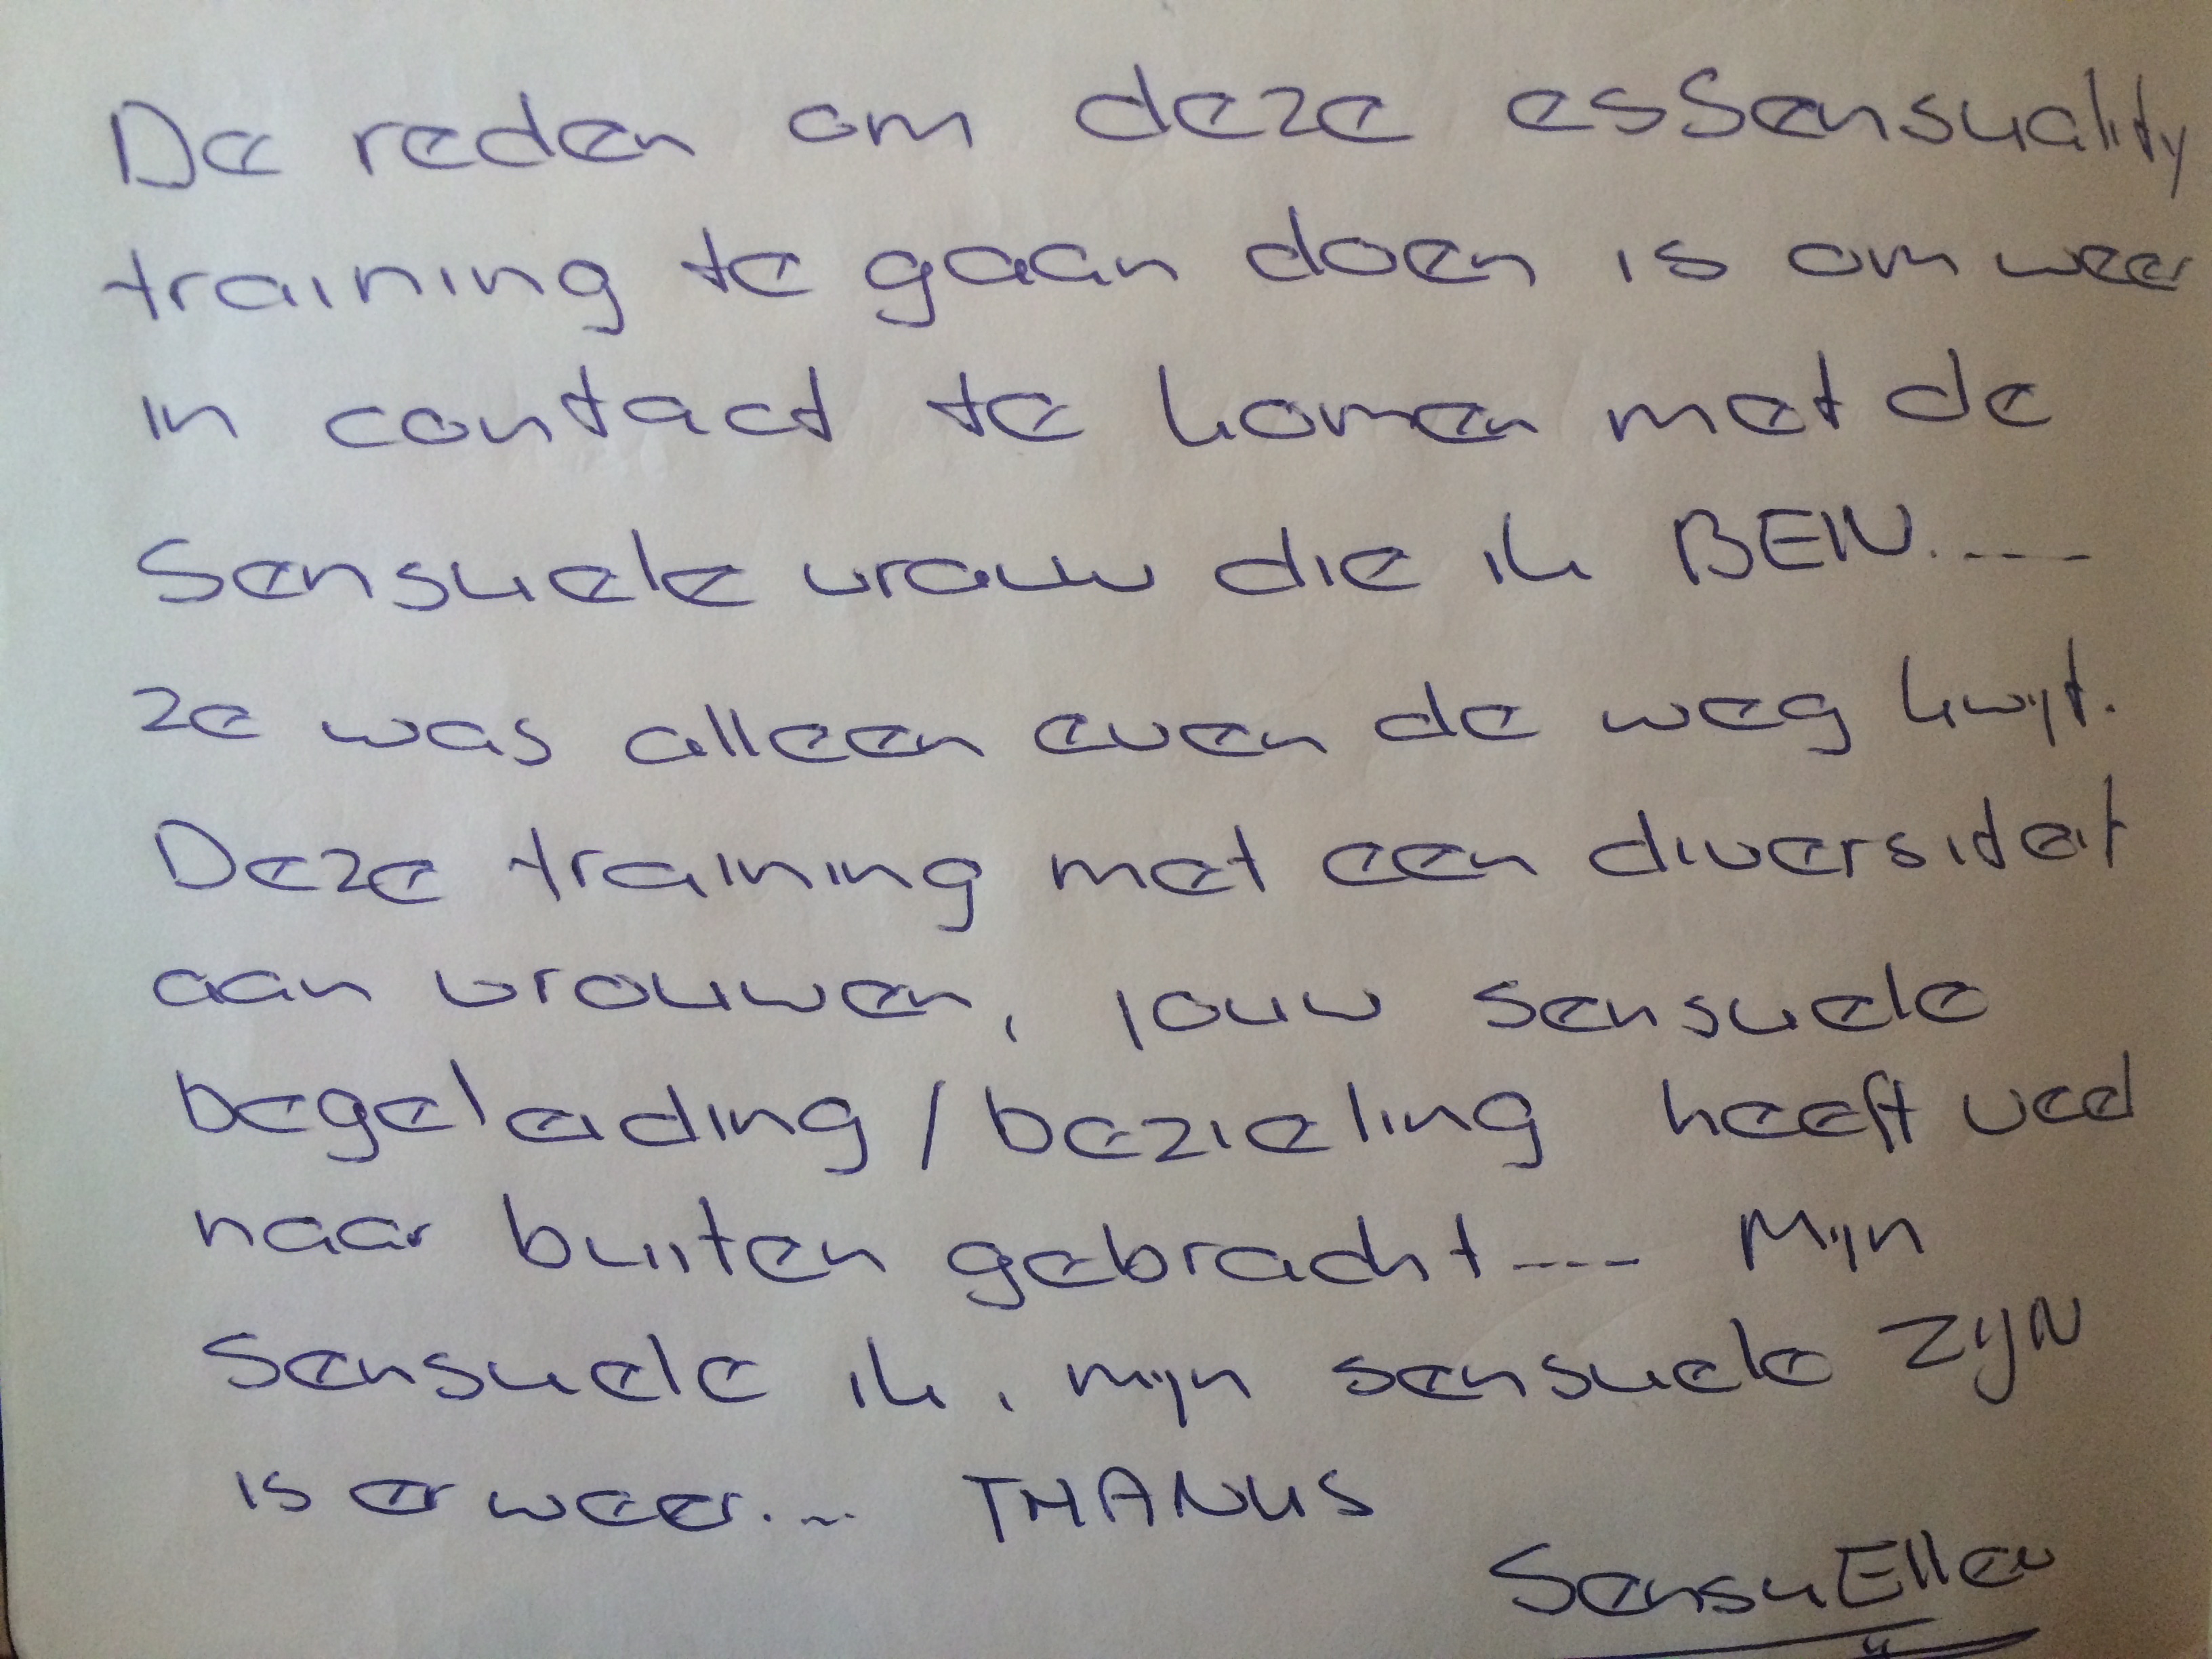 De reden om deze esSensuality
training te gaan doen is om weer
in contact te komen met de
Sensuele vrouw die ik BEN.----
ze was alleen even de weg kwijt.
Deze training met een diversiteit
aan vrouwen, jouw sensuele
begeleiding/bezieling heeft veel
naar buiten gebracht---- Mijn
Sensuele ik, mijn sensuele ZIJN
is er weer.... THANKS
SensuEllen